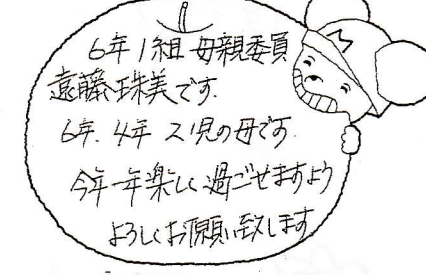 6年1組 母親委員
遠藤珠美です.
6年.4年 2児の母です.
今年一年楽しく過ごせますよう
よろしくお願い致します